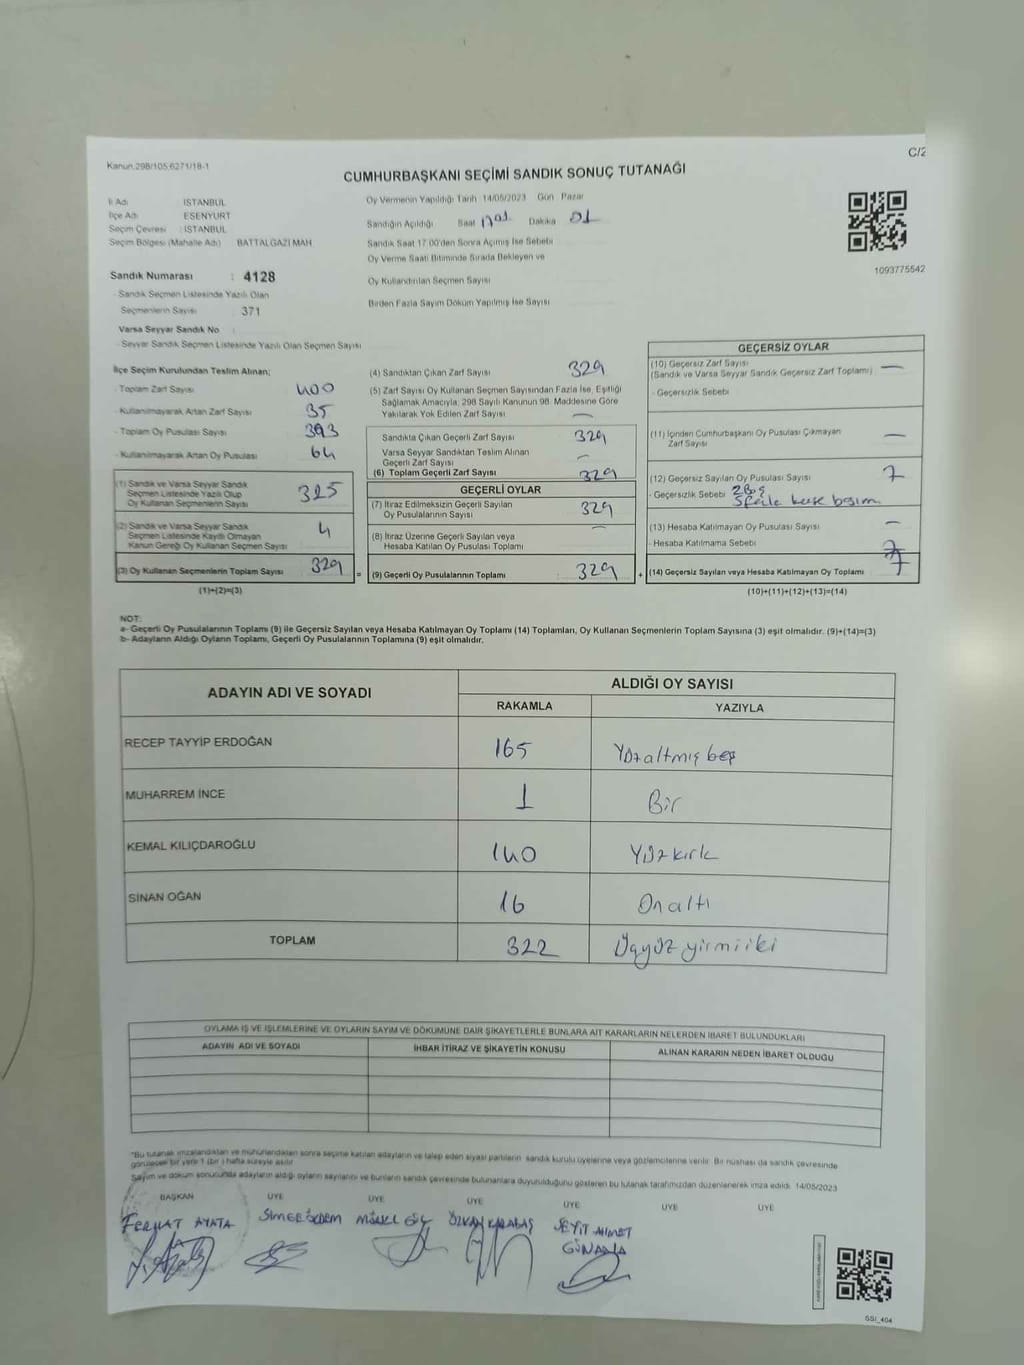 Kanun.298/105,6271/18-1
C/2
CUMHURBAŞKANI SEÇİMİ SANDIK SONUÇ TUTANAĞI
İl Adı : İSTANBUL
İlçe Adı : ESENYURT
Seçim Çevresi : İSTANBUL
Seçim Bölgesi (Mahalle Adı) BATTALGAZİ MAH
Sandık Numarası : 4128
- Sandık Seçmen Listesinde Yazılı Olan
Seçmenlerin Sayısı 371
Varsa Seyyar Sandık No
- Seyyar Sandık Seçmen Listesinde Yazılı Olan Seçmen Sayısı
Oy Vermenin Yapıldığı Tarih 14/05/2023 Gün Pazar
Sandığın Açıldığı Saat 1701 Dakika 01
Sandık Saat 17.00'den Sonra Açılmış İse Sebebi
Oy Verme Saati Bitiminde Sırada Bekleyen ve
Oy Kullandırılan Seçmen Sayısı
Birden Fazla Sayım Döküm Yapılmış İse Sayısı
1093775542
İlçe Seçim Kurulundan Teslim Alınan;
- Toplam Zarf Sayısı 400
- Kullanılmayarak Artan Zarf Sayısı 35
- Toplam Oy Pusulası Sayısı 393
- Kullanılmayarak Artan Oy Pusulası 64
(1) Sandık ve Varsa Seyyar Sandık
Seçmen Listesinde Yazılı Olup
Oy Kullanan Seçmenlerin Sayısı 325
(2) Sandık ve Varsa Seyyar Sandık
Seçmen Listesinde Kayıtlı Olmayan
Kanun Gereği Oy Kullanan Seçmen Sayısı 4
(3) Oy Kullanan Seçmenlerin Toplam Sayısı 329 =
(1)+(2)=(3)
(4) Sandıktan Çıkan Zarf Sayısı 329
(5) Zarf Sayısı Oy Kullanan Seçmen Sayısından Fazla İse, Eşitliği
Sağlamak Amacıyla; 298 Sayılı Kanunun 98. Maddesine Göre
Yakılarak Yok Edilen Zarf Sayısı —
Sandıkta Çıkan Geçerli Zarf Sayısı 329
Varsa Seyyar Sandıktan Teslim Alınan
Geçerli Zarf Sayısı —
(6) Toplam Geçerli Zarf Sayısı 329
GEÇERLİ OYLAR
(7) İtiraz Edilmeksizin Geçerli Sayılan
Oy Pusulalarının Sayısı 329
(8) İtiraz Üzerine Geçerli Sayılan veya
Hesaba Katılan Oy Pusulası Toplamı —
(9) Geçerli Oy Pusulalarının Toplamı 329 +
GEÇERSİZ OYLAR
(10) Geçersiz Zarf Sayısı —
(Sandık ve Varsa Seyyar Sandık Geçersiz Zarf Toplamı)
- Geçersizlik Sebebi
(11) İçinden Cumhurbaşkanı Oy Pusulası Çıkmayan
Zarf Sayısı —
(12) Geçersiz Sayılan Oy Pusulası Sayısı 7
- Geçersizlik Sebebi 2 Boş
(13) Hesaba Katılmayan Oy Pusulası Sayısı —
- Hesaba Katılmama Sebebi
(14) Geçersiz Sayılan veya Hesaba Katılmayan Oy Toplamı 7
(10)+(11)+(12)+(13)=(14)
NOT:
a- Geçerli Oy Pusulalarının Toplamı (9) ile Geçersiz Sayılan veya Hesaba Katılmayan Oy Toplamı (14) Toplamları, Oy Kullanan Seçmenlerin Toplam Sayısına (3) eşit olmalıdır. (9)+(14)=(3)
b- Adayların Aldığı Oyların Toplamı, Geçerli Oy Pusulalarının Toplamına (9) eşit olmalıdır.
ADAYIN ADI VE SOYADI
ALDIĞI OY SAYISI
RAKAMLA YAZIYLA
RECEP TAYYİP ERDOĞAN 165 Yüzaltmış beş
MUHARREM İNCE 1 Bir
KEMAL KILIÇDAROĞLU 140 Yüzkırk
SİNAN OĞAN 16 Onaltı
TOPLAM 322 Üçyüz yirmiiki
OYLAMA İŞ VE İŞLEMLERİNE VE OYLARIN SAYIM VE DÖKÜMÜNE DAİR ŞİKAYETLERLE BUNLARA AİT KARARLARIN NELERDEN İBARET BULUNDUKLARI
ADAYIN ADI VE SOYADI İHBAR İTİRAZ VE ŞİKAYETİN KONUSU ALINAN KARARIN NEDEN İBARET OLDUĞU
"Bu tutanak imzalandıktan ve mühürlendikten sonra seçime katılan adayların ve talep eden siyasi partilerin sandık kurulu üyelerine veya gözlemcilerine verilir. Bir nüshası da sandık çevresinde
görülecek bir yere 1 (bir) hafta süreyle asılır.
Sayım ve döküm sonucunda adayların aldığı oyların sayılarını ve bunların sandık çevresinde bulunanlara duyurulduğunu gösteren bu tutanak tarafımızdan düzenlenerek imza edildi. 14/05/2023
BAŞKAN ÜYE ÜYE ÜYE ÜYE ÜYE ÜYE
FERHAT AYATA
ÖZKAN KARABAŞ
SEYİT AHMET
SSI_404